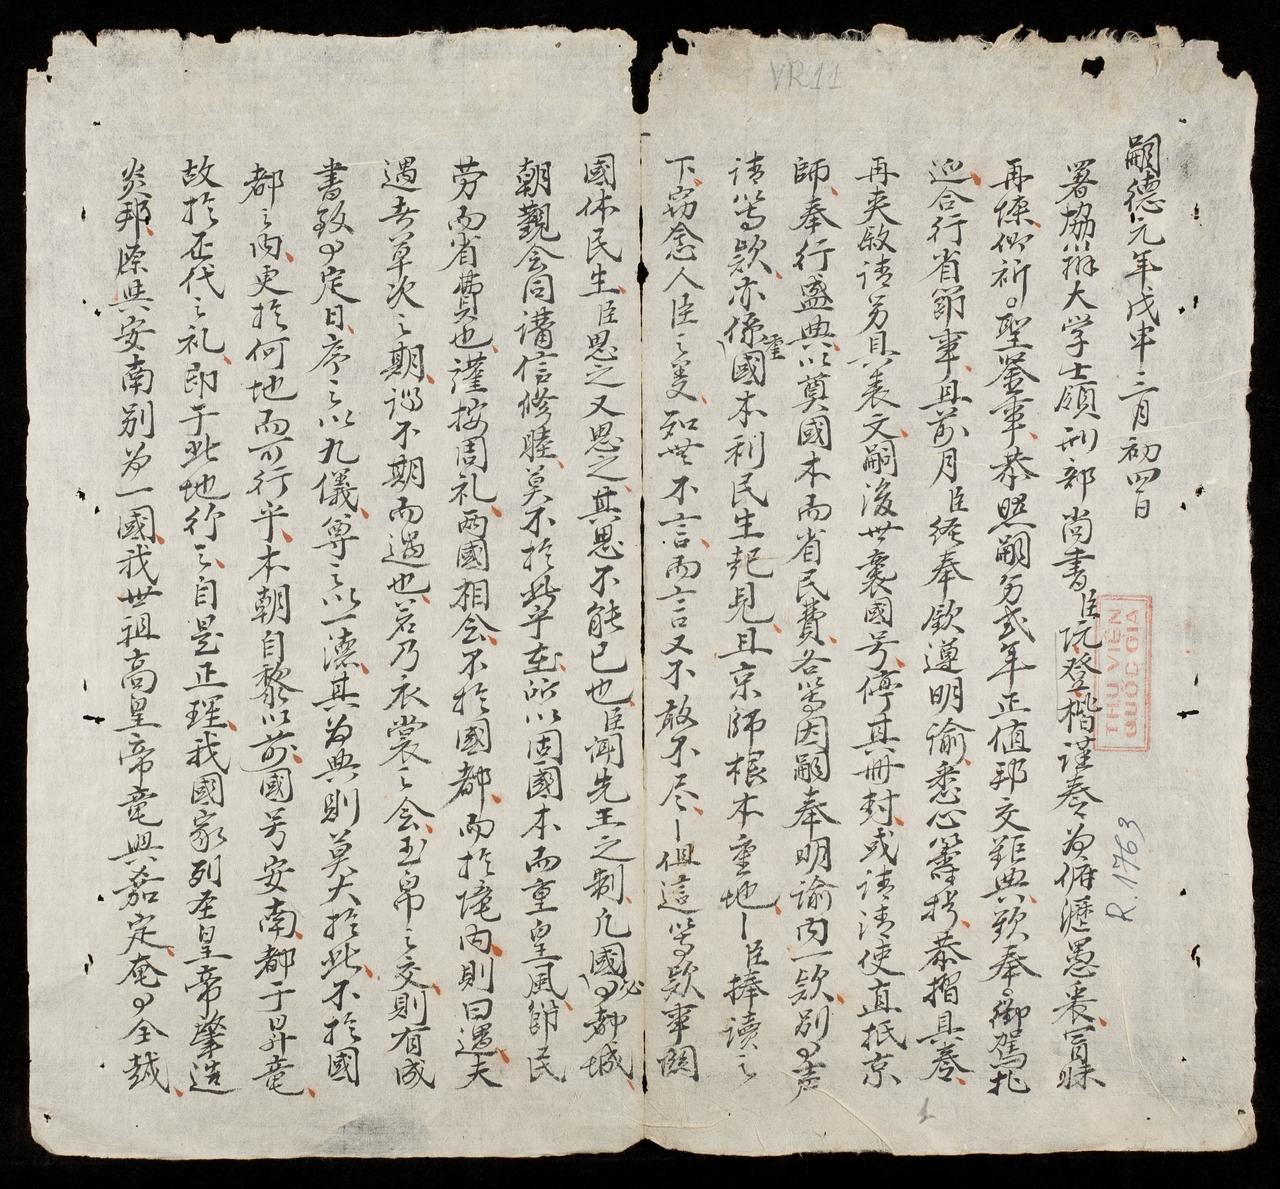 VR11
嗣德元年戊申三月初四日
署協辦大学士領刑部尚書臣阮登楷謹奏為俯瀝愚衷冒昧
再陳仰祈聖鑒事恭照嗣另貳年正值邦交鉅典欵奉御駕北
巡合行省節事且前月臣経奉欽遵明諭悉心籌拟恭摺具奏
再夾敘請另具表文嗣後世襲國号停其冊封或請清使直抵京
師奉行盛典以奠國本而省民費各等因嗣奉明諭内一欵別声
請等欵亦係重國本利民生起見且京師根本重地臣捧讀之
下窃念人臣之义知無不言而言又不敢不尽但這等欵事関
國体民生臣思之又思之其思不能已也臣聞先王之制凡國必都城
朝覲会同講信修睦莫不於此乎在所以固國本而重皇風節民
劳而省費也謹按周礼两國相会不於國都而於境内則曰遇夫
遇者草次之期謂不期而遇也若乃衣裳之会玉帛之交則有成
書致定日序之以九儀尊之以一德其為典則莫大於此不於國
都之内更於何地而可行乎本朝自黎以前國号安南都于昇竜
故於歷代之礼即于此地行之自是正理我國家列圣皇帝肇造
炎邦原與安南别為一國我世祖高皇帝竜興嘉定奄全越
THƯ VIỆN
QUỐC GIA
R. 1763
1